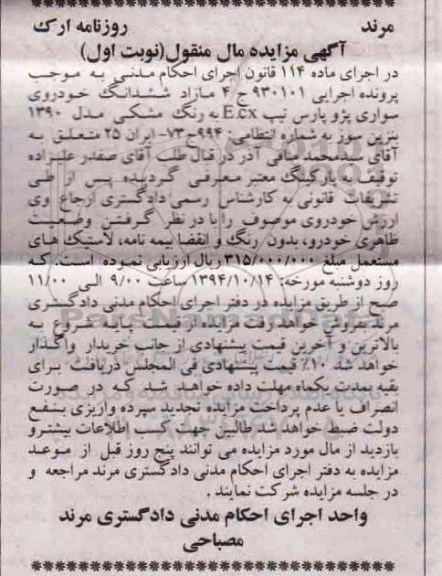 مرند روزنامه ارک
آگهی مزایده مال منقول(نوبت اول)
در اجرای ماده ۱۱۴ قانون اجرای احکام مدنی به موجب
پرونده اجرایی ۹۳۰۱۰۱ ج ۴ مازاد ششدانگ خودروی
سواری پژو پارس تیپ E.cx به رنگ مشکی مدل ۱۳۹۰
بنزین سوز به شماره انتظامی: ۹۹۴ج۷۳- ایران ۲۵ متعلق به
آقای سیدمحمد صافی آذر در قبال طلب آقای صفدر علیزاده
توقیف و پارکینگ معتبر معرفی گردیده پس از طی
تشریفات قانونی به کارشناس رسمی دادگستری ارجاع وی
ارزش خودروی موصوف را با در نظر گرفتن وضعیت
ظاهری خودرو، بدون رنگ و انقضا بیمه نامه، لاستیک های
مستعمل مبلغ ۳۱۵/۰۰۰/۰۰۰ ریال ارزیابی نموده است. که
روز دوشنبه مورخه: ۱۳۹۴/۱۰/۱۴ ساعت ۹/۰۰ الی ۱۱/۰۰
صبح از طریق مزایده در دفتر اجرای احکام مدنی دادگستری
مرند بفروش خواهد رفت مزایده از قیمت پایه شروع به
بالاترین و آخرین قیمت پیشنهادی از جانب خریدار واگذار
خواهد شد ۱۰٪ قیمت پیشنهادی فی المجلس دریافت برای
بقیه بمدت یکماه مهلت داده خواهد شد که در صورت
انصراف یا عدم پرداخت مزایده تجدید سپرده واریزی بنفع
دولت ضبط خواهد شد طالبین جهت کسب اطلاعات بیشتر و
بازدید از مال مورد مزایده می توانند پنج روز قبل از موعد
مزایده به دفتر اجرای احکام مدنی دادگستری مرند مراجعه و
در جلسه مزایده شرکت نمایند .
واحد اجرای احکام مدنی دادگستری مرند
مصباحی